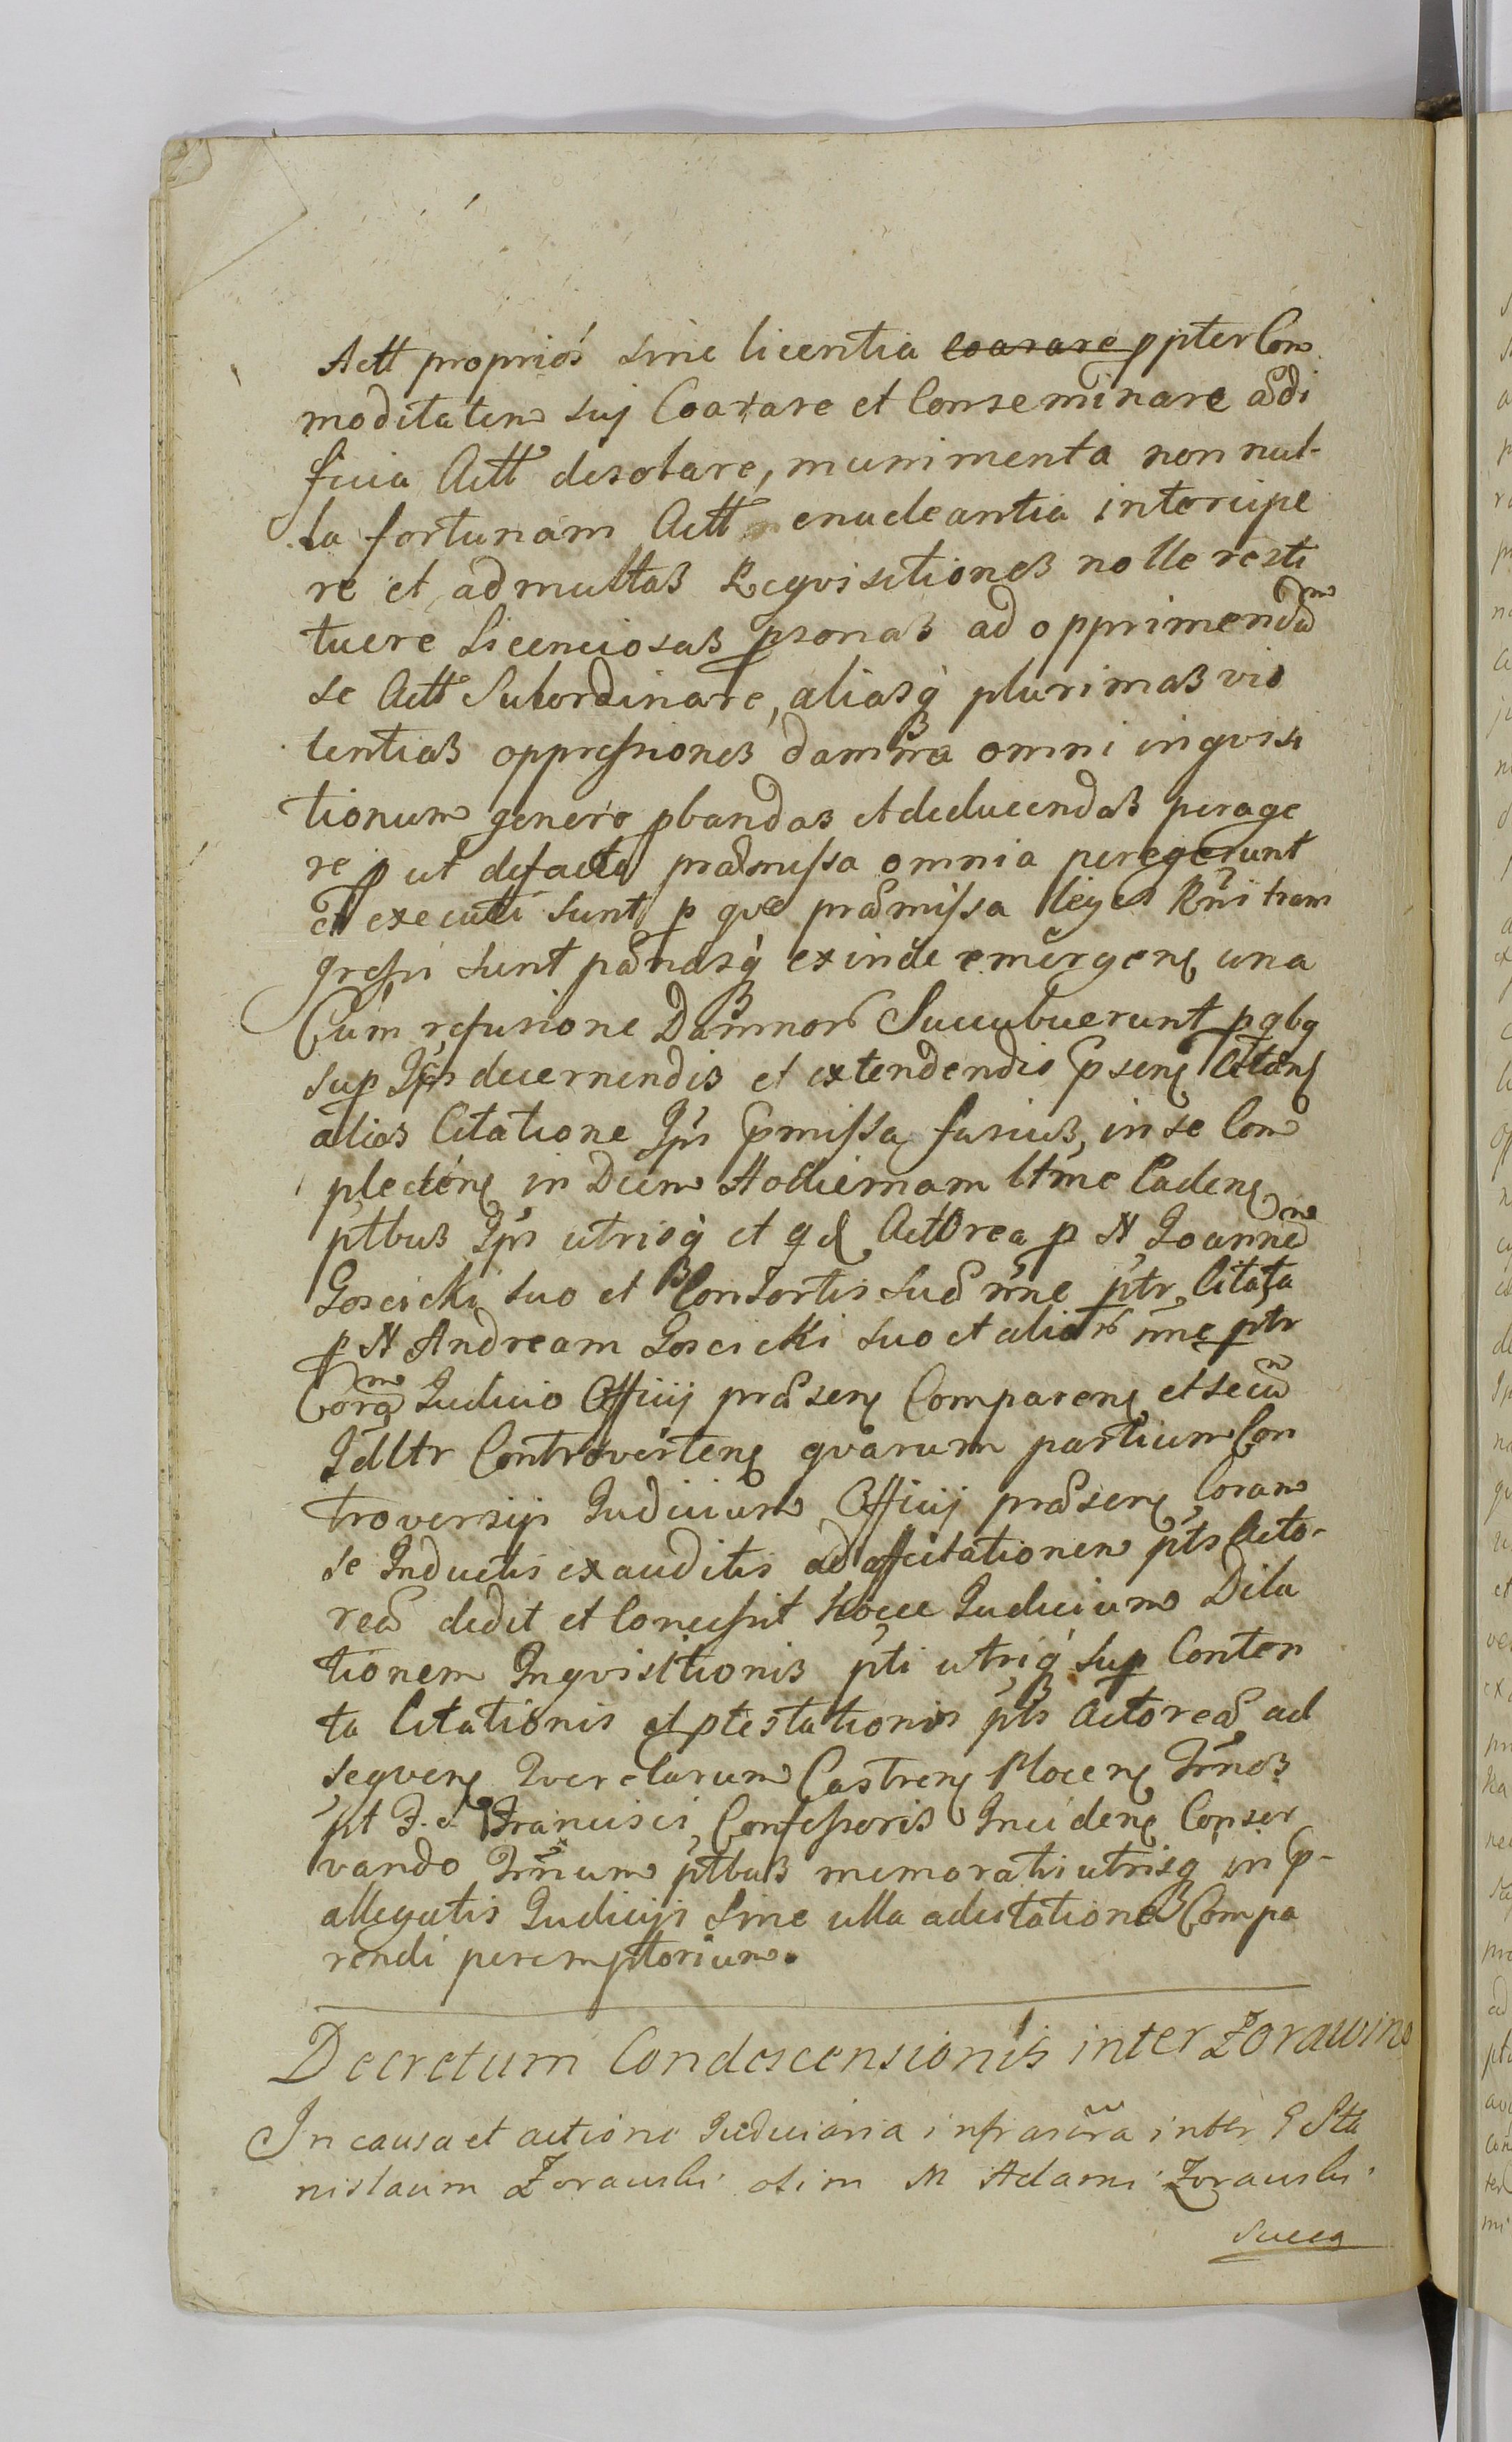 Actt propriós sine licentia coarare ppter Com
moditatem suj Coarare et Conseminare ædi
ficia Actt desolare, munimenta non nul-
la fortunam Actt enucleantia intercipe
re et ad multas Reqvisitiones nolle resti
tuere Licenciosas psonas ad opprimendam
se Actt Subordinare, aliasq plurimas vio
lentias oppressiones damna omni inqvisi
tionum genere pbandas et deducendas perage
re p ut defacto præmissa omnia peregerunt
et executi sunt p qvæ præmissa leges Rni trans
gressi sunt pænasq exinde emergen una
Cum refusione Damnor Succubuerunt p qbq
sup Ipsis decernendis et extendendis psen Citan
alias Citatione Ipsis pmissa fusius in se Com
plecten in Diem Hodiernam ltme Caden
ptbus Ipsis utrisq et qd Actorea p N Joannem
Goscicki suo et Consortis suæ nne ptr Citata
p N Andream Goscicki suo et alior nne ptr
Coram Judicio Officij præsen Comparen et secum
Jdltr Controverten qvarum partium Con
troversijs Judicium Officij præsen Coram
se Inductis exauditis ad affectationem pts Acto-
reæ dedit et Concessit hocce Judicium Dila
tionem Inqvisitionis pti utriq sup Conten
ta Citationis et ptestationis pts Actoreæ ad
seqven Qverelarum Castren Plocen Trnos
pt F. S. Francisci Confessoris Inciden Conser
vando Trnum ptbus memoratis utrisq in p-
allegatis Judicijs sine ulla adcitatione Compa
rendi peremptorium.
Decretum Condescensionis inter Żorawins
In causa et actione Judiciaria infrascra inter G Sta
nislaum Żorawski olim M Adami Żorawski
Succa